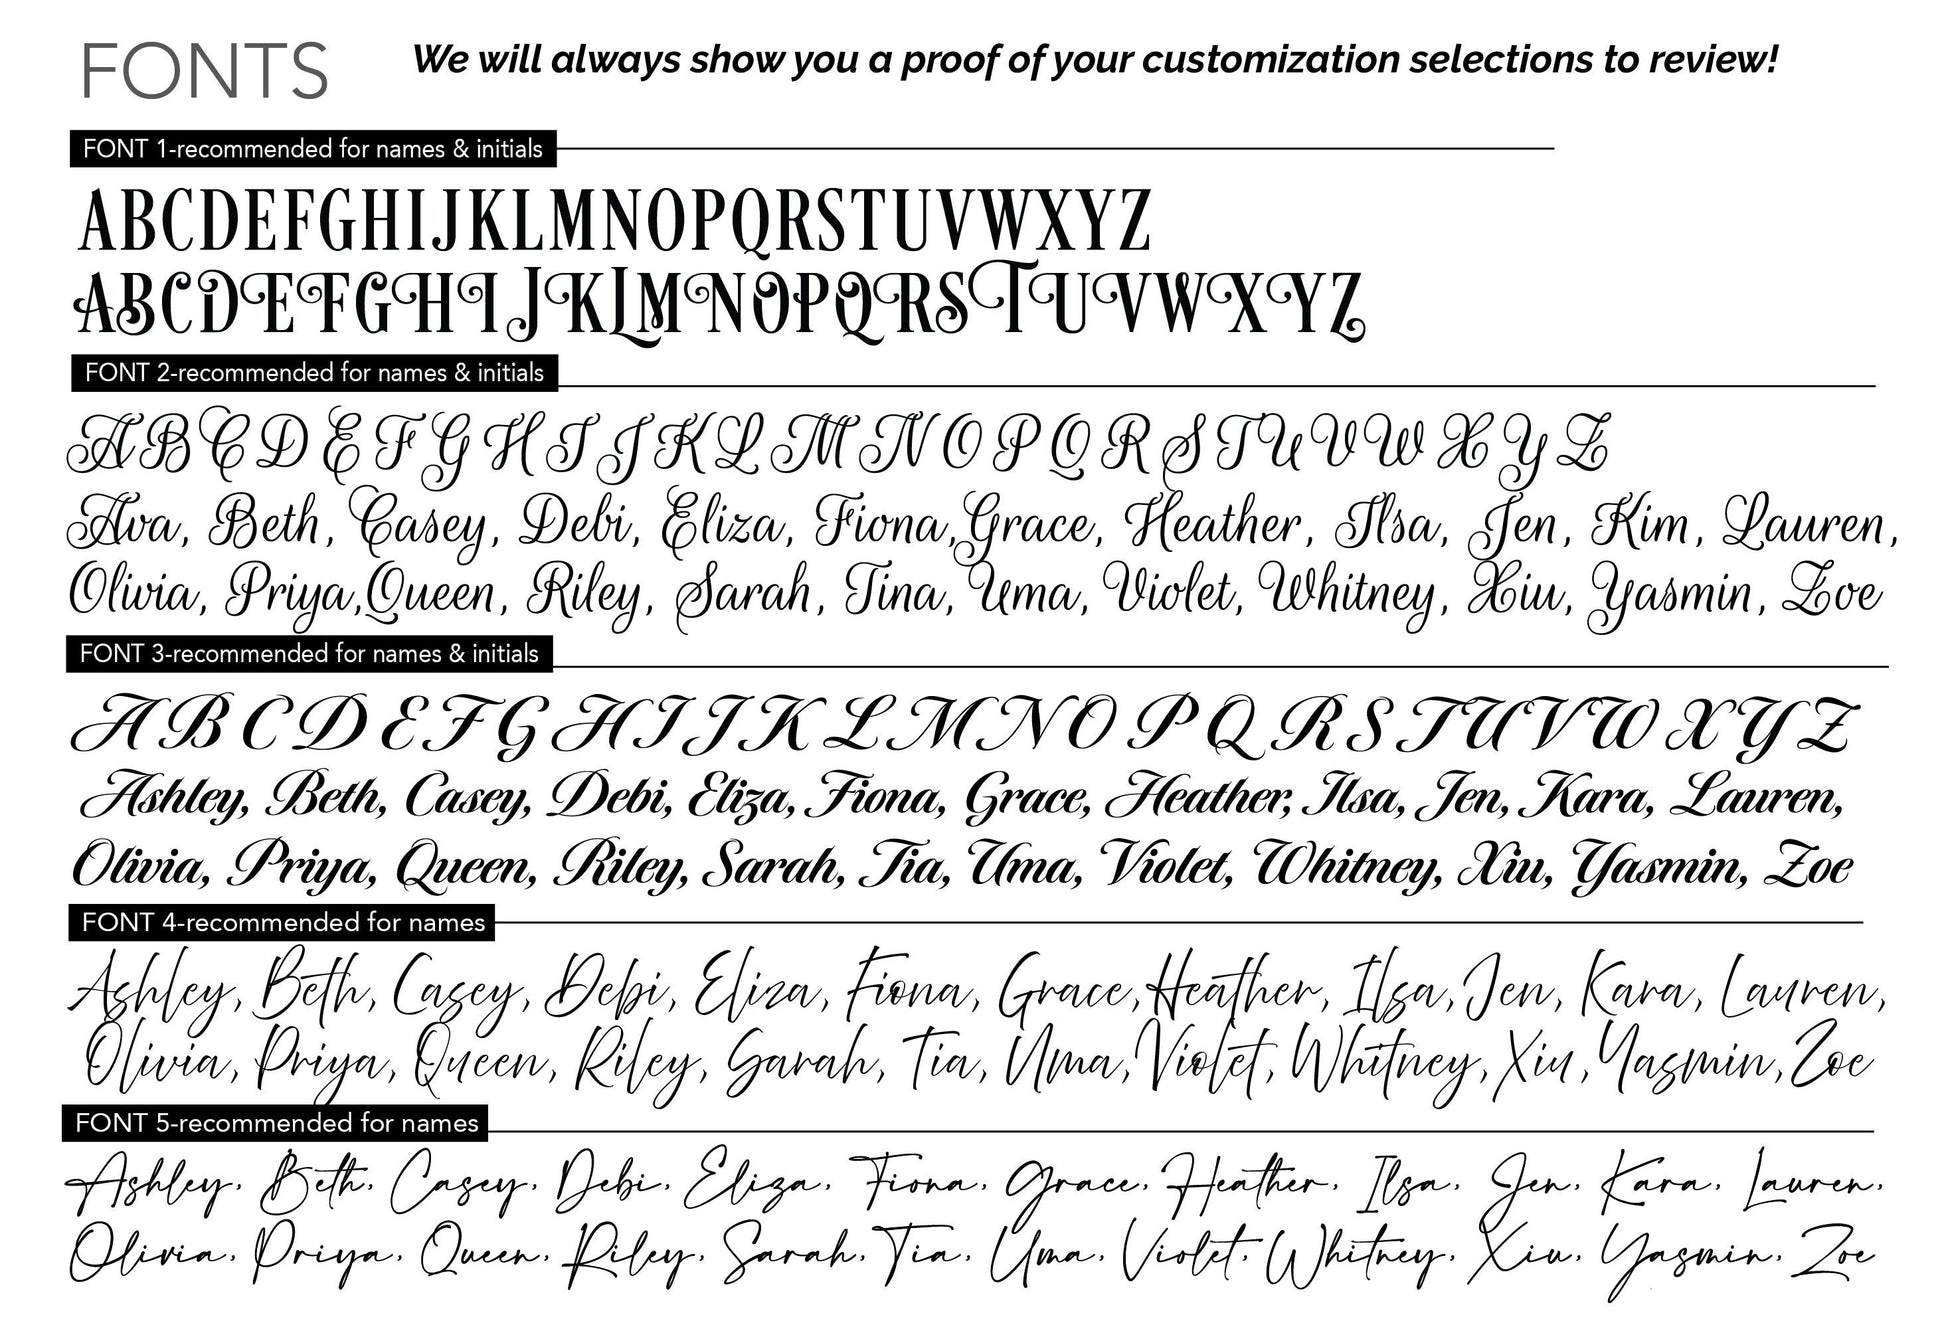 FONTS
We will always show you a proof of your customization selections to review!
FONT 1-recommended for names & initials
ABCDEFGHIJKLMNOPQRSTUVWXYZ
ABCDEFGHIJKLMNOPQRSTUVWXYZ
FONT 2-recommended for names & initials
A B C D E F G H I J K L M N O P Q R S T U V W X Y Z
Ava, Beth, Casey, Debi, Eliza, Fiona, Grace, Heather, Ilsa, Jen, Kim, Lauren,
Olivia, Priya, Queen, Riley, Sarah, Tina, Uma, Violet, Whitney, Xiu, Yasmin, Zoe
FONT 3-recommended for names & initials
A B C D E F G H I J K L M N O P Q R S T U V W X Y Z
Ashley, Beth, Casey, Debi, Eliza, Fiona, Grace, Heather, Ilsa, Jen, Kara, Lauren,
Olivia, Priya, Queen, Riley, Sarah, Tia, Uma, Violet, Whitney, Xiu, Yasmin, Zoe
FONT 4-recommended for names
Ashley, Beth, Casey, Debi, Eliza, Fiona, Grace, Heather, Ilsa, Jen, Kara, Lauren,
Olivia, Priya, Queen, Riley, Sarah, Tia, Uma, Violet, Whitney, Xiu, Yasmin, Zoe
FONT 5-recommended for names
Ashley, Beth, Casey, Debi, Eliza, Fiona, Grace, Heather, Ilsa, Jen, Kara, Lauren,
Olivia, Priya, Queen, Riley, Sarah, Tia, Uma, Violet, Whitney, Xiu, Yasmin, Zoe